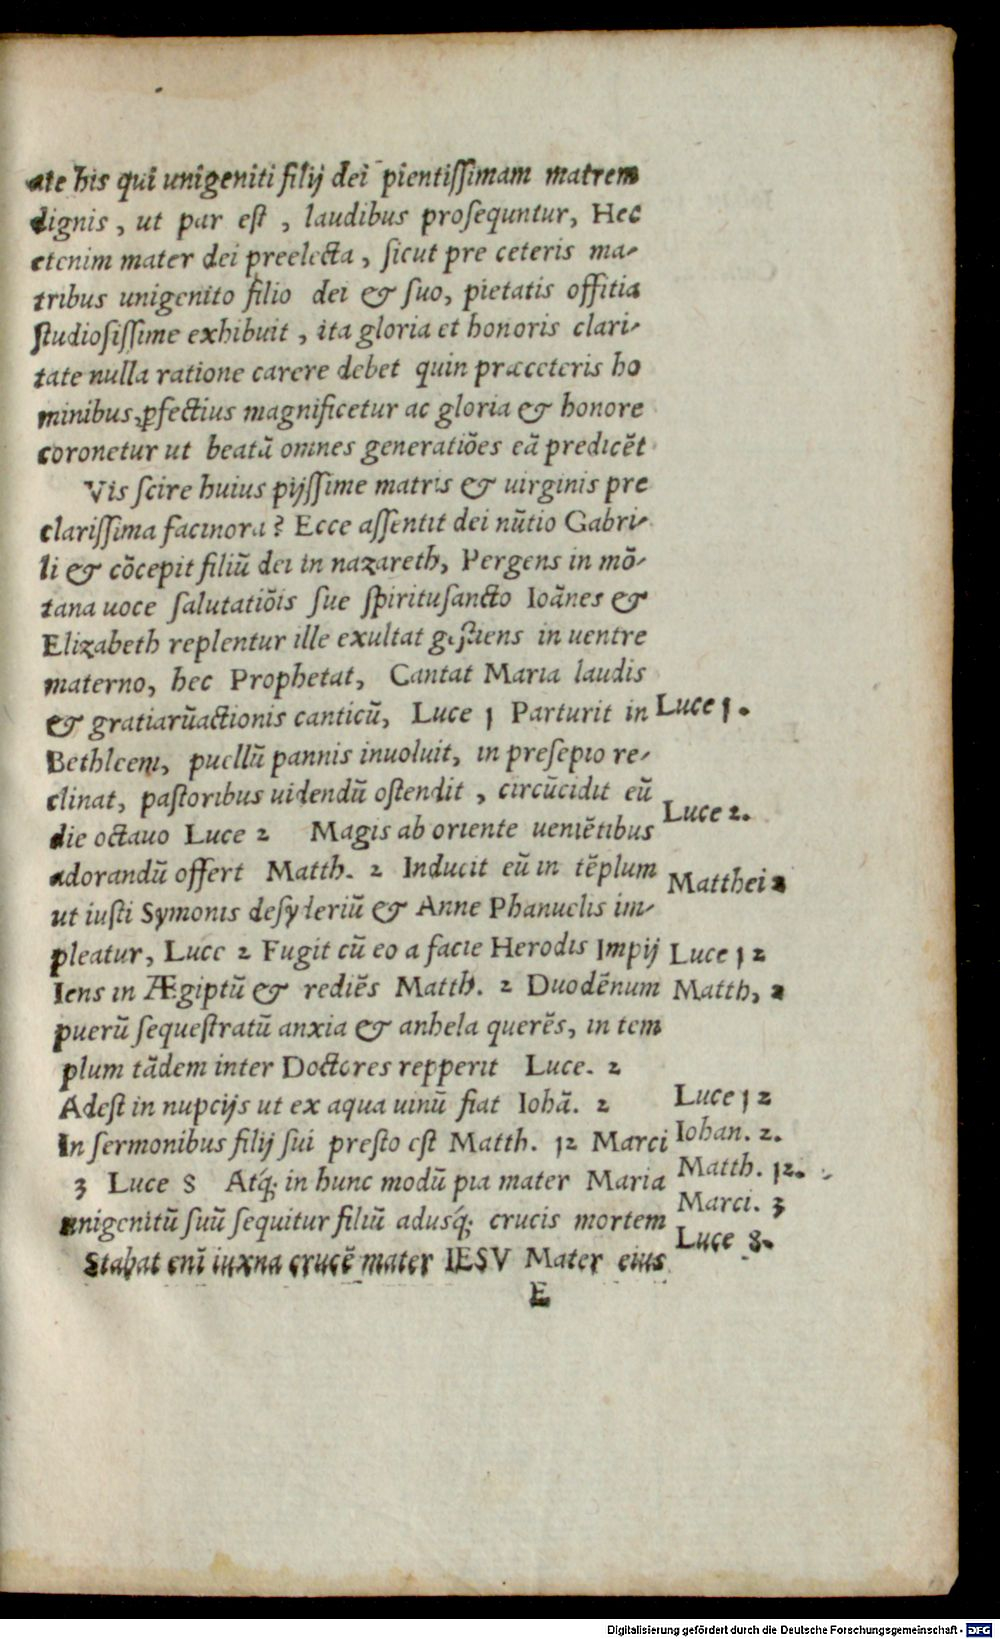 ate his qui unigeniti filij dei pientissimam matrem
dignis, ut par est, laudibus prosequntur, Hec
etenim mater dei preelecta, sicut pre ceteris ma-
tribus unigenito filio dei & suo, pietatis offitia
studiosissime exhibuit, ita gloria et honoris clari-
tate nulla ratione carere debet quin præceteris ho
minibus, ꝑfectius magnificetur ac gloria & honore
coronetur ut beatā omnes generatiōes eā predicēt
Vis scire huius pijssime matris & uirginis pre
clarissima facinora? Ecce assentit dei nūtio Gabri-
li & cōcepit filiū dei in nazareth, Pergens in mō-
tana uoce salutatiōis sue spiritusancto Ioānes &
Elizabeth replentur ille exultat gestiens in uentre
materno, hec Prophetat, Cantat Maria laudis
& gratiarūactionis canticū, Luce 1 Parturit in
Luce 1.
Bethleem, puellū pannis inuoluit, in presepio re-
clinat, pastoribus uidendū ostendit, circūcidit eū
Luce 2.
die octauo Luce 2 Magis ab oriente ueniētibus
adorandū offert Matth. 2 Inducit eū in tēplum
Matthei 2
ut iusti Symonis desyderiū & Anne Phanuelis im-
pleatur, Luce 2 Fugit cū eo a facie Herodis Impij
Luce 12
Iens in Ægiptū & rediēs Matth. 2 Duodēnum
Matth, 2
puerū sequestratū anxia & anhela querēs, in tem
plum tādem inter Doctores repperit Luce. 2
Adest in nupcijs ut ex aqua uinū fiat Iohā. 2
Luce 12
In sermonibus filij sui presto est Matth. 12 Marci
Iohan. 2.
3 Luce 8 Atq; in hunc modū pia mater Maria
Matth. 12.
unigenitū suū sequitur filiū adusq; crucis mortem
Marci. 3
Stabat enī iuxna crucē mater IESV Mater eius
Luce 8.
E
Digitalisierung gefördert durch die Deutsche Forschungsgemeinschaft - DFG